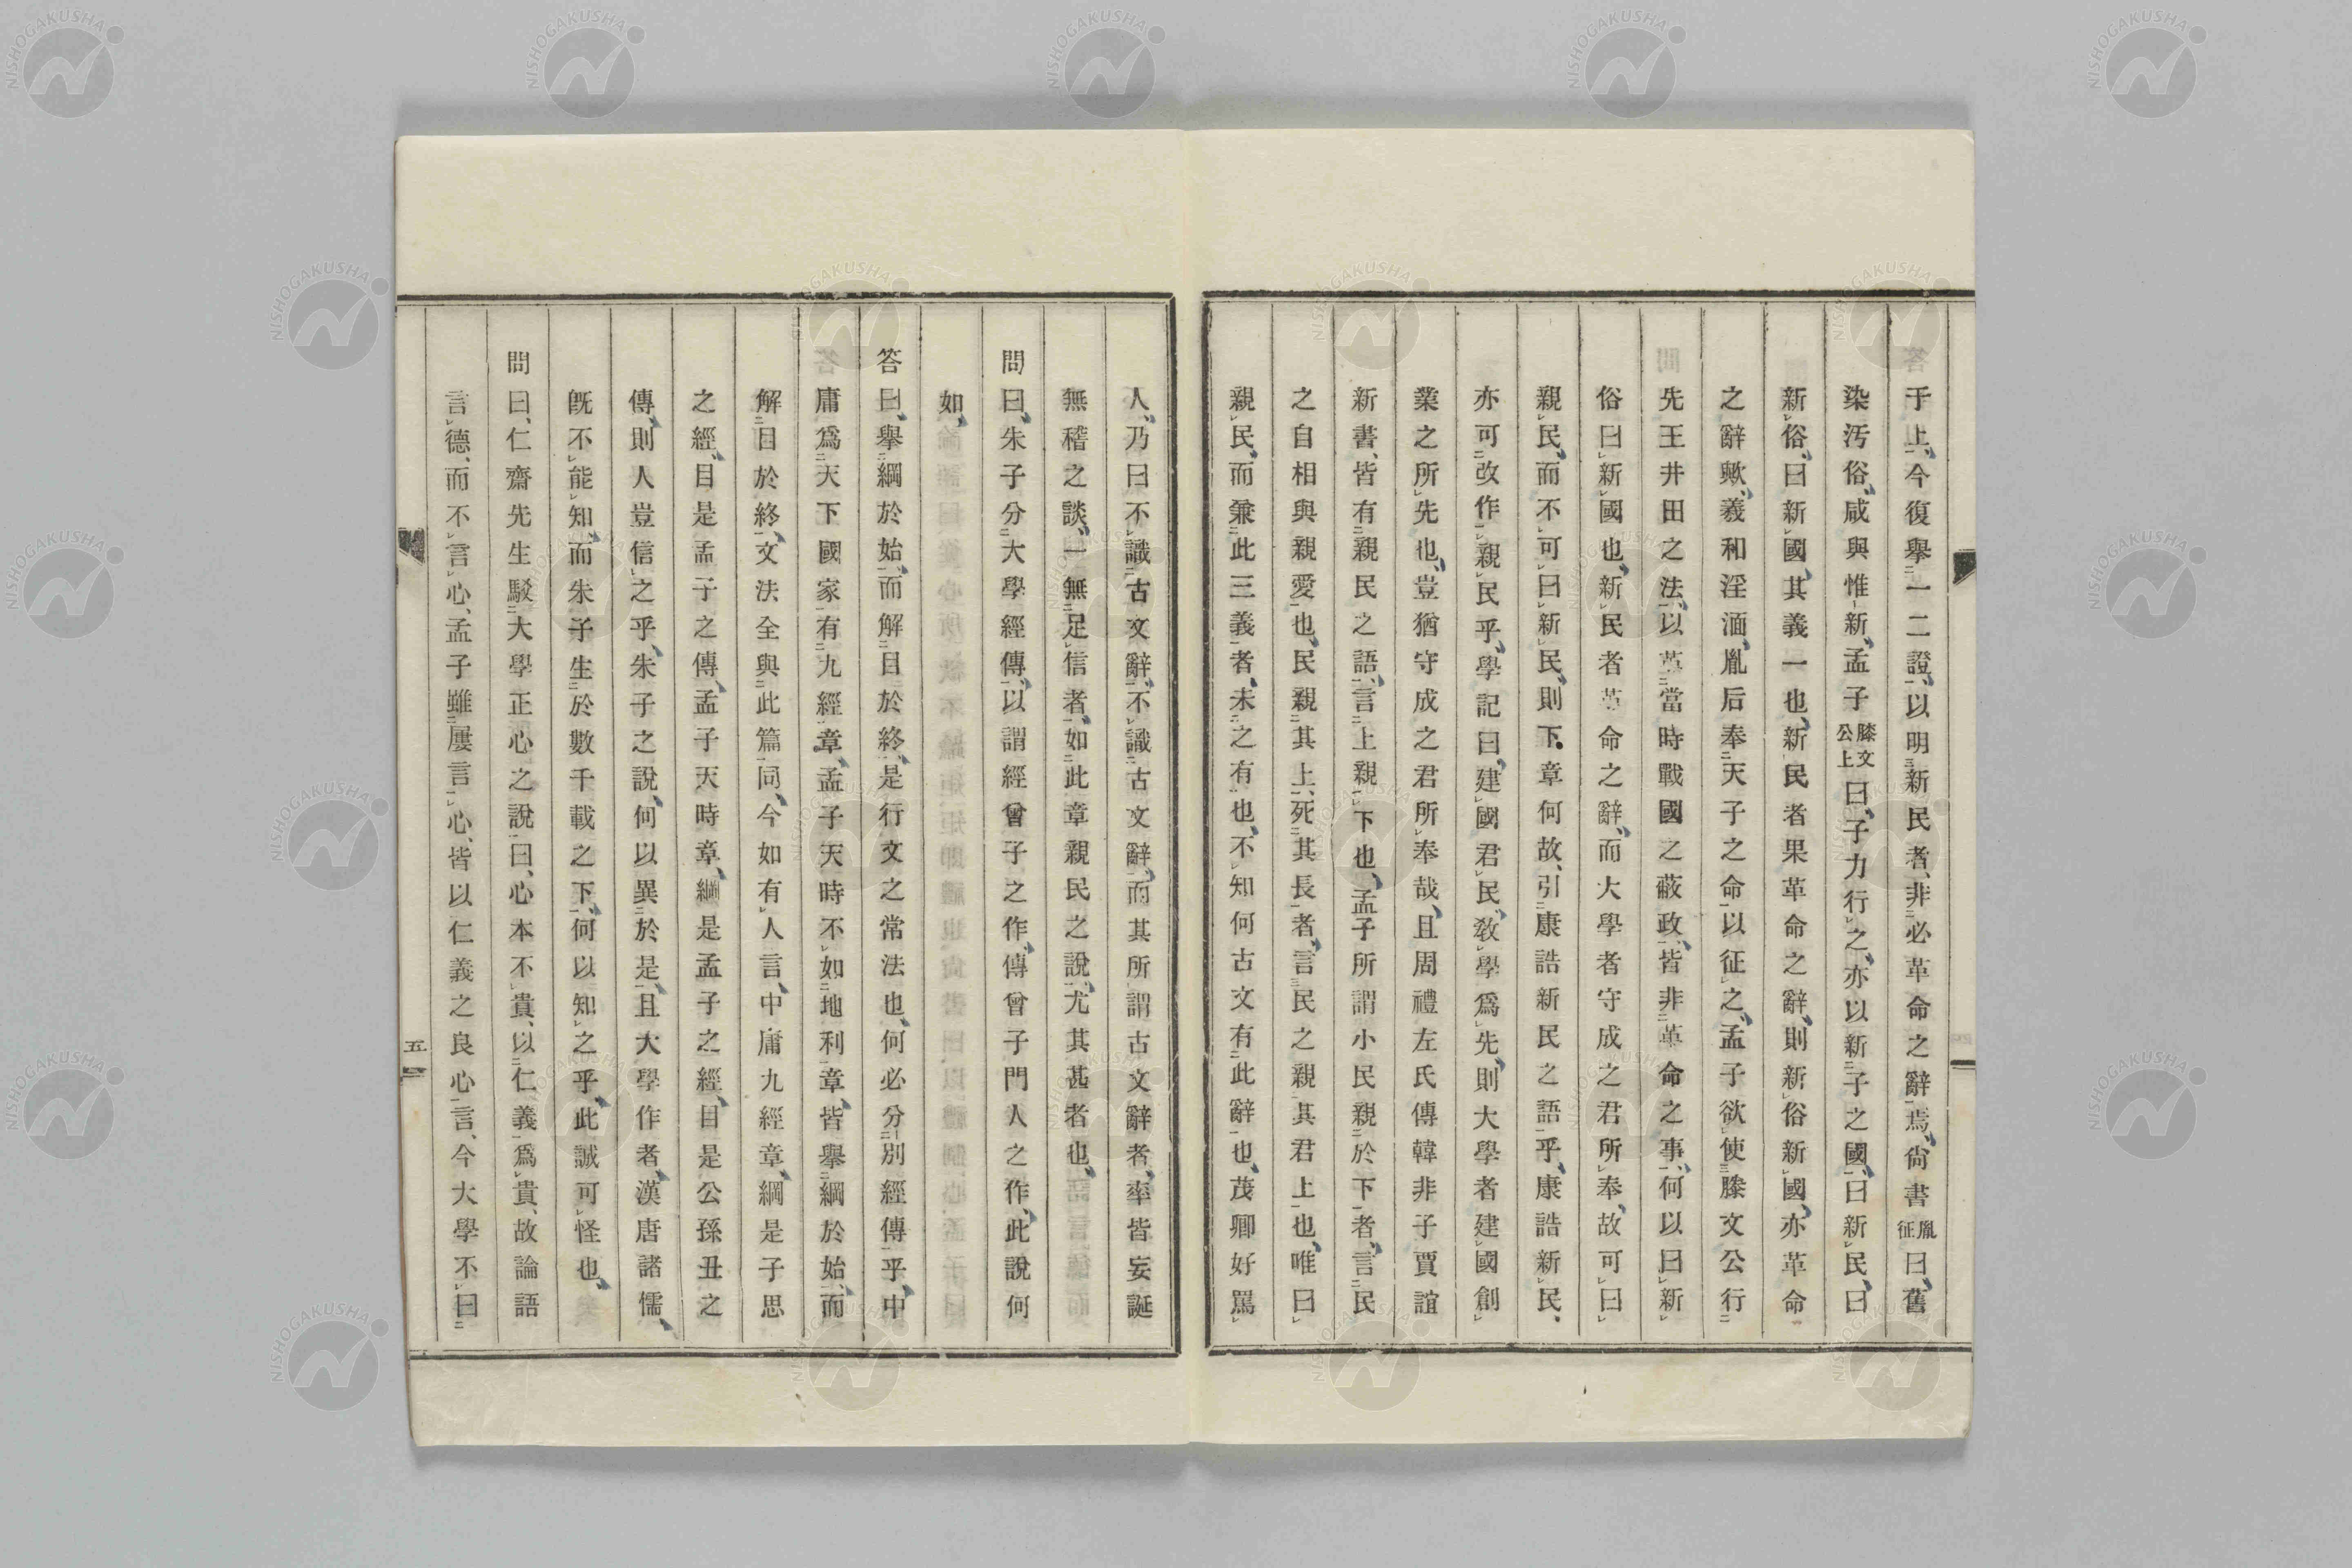 于上、今復擧一二證、以明新民者、非必革命之辭焉、尙書胤征曰、舊
染汚俗、咸與惟新、孟子滕文公上曰、子力行之、亦以新子之國、曰新民、曰
新俗、曰新國、其義一也、新民者果革命之辭、則新俗新國、亦革命
之辭歟、羲和淫湎、胤后奉天子之命以征之、孟子欲使滕文公行
先王井田之法、以革當時戰國之蔽政、皆非革命之事、何以曰新
俗曰新國也、新民者革命之辭、而大學者守成之君所奉、故可曰
親民、而不可曰新民、則下章何故、引康誥新民之語乎、康誥新民、
亦可改作親民乎、學記曰、建國君民、敎學爲先、則大學者建國創
業之所先也、豈猶守成之君所奉哉、且周禮左氏傳韓非子賈誼
新書、皆有親民之語、言上親下也、孟子所謂小民親於下者、言民
之自相與親愛也、民親其上、死其長者、言民之親其君上也、唯曰
親民、而兼此三義者、未之有也、不知何古文有此辭也、茂卿好罵
人、乃曰不識古文辭、不識古文辭、而其所謂古文辭者、率皆妄誕
無稽之談、一無足信者、如此章親民之說、尤其甚者也、
問曰、朱子分大學經傳、以謂經曾子之作、傳曾子門人之作、此說何
如、
答曰、擧綱於始、而解目於終、是行文之常法也、何必分別經傳乎、中
庸爲天下國家有九經章、孟子天時不如地利章、皆擧綱於始、而
解目於終、文法全與此篇同、今如有人言、中庸九經章、綱是子思
之經、目是孟子之傳、孟子天時章、綱是孟子之經、目是公孫丑之
傳、則人豈信之乎、朱子之說、何以異於是、且大學作者、漢唐諸儒、
旣不能知、而朱子生於數千載之下、何以知之乎、此誠可怪也、
問曰、仁齋先生駁大學正心之說曰、心本不貴、以仁義爲貴、故論語
言德、而不言心、孟子雖屢言心、皆以仁義之良心言、今大學不曰
五
NISHOGAKUSHA